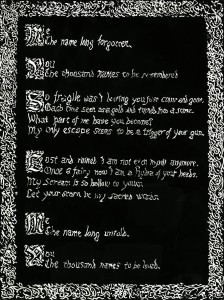 Me
the name long forgotten.
You
the thousand names to be remembered
So fragile was I loving you just come and gone.
Each time seen as a gold and turned into a stone.
What part of me have you become?
My only escape seems to be a trigger of your gun.
Lost and ruined I am not even myself anymore.
Once a fairy now I am a Hydra of your heads.
My Scream is so hollow to yours.
Let your scorn be my sacred words.
Me
the name long untold.
You
the thousand names to be loved.